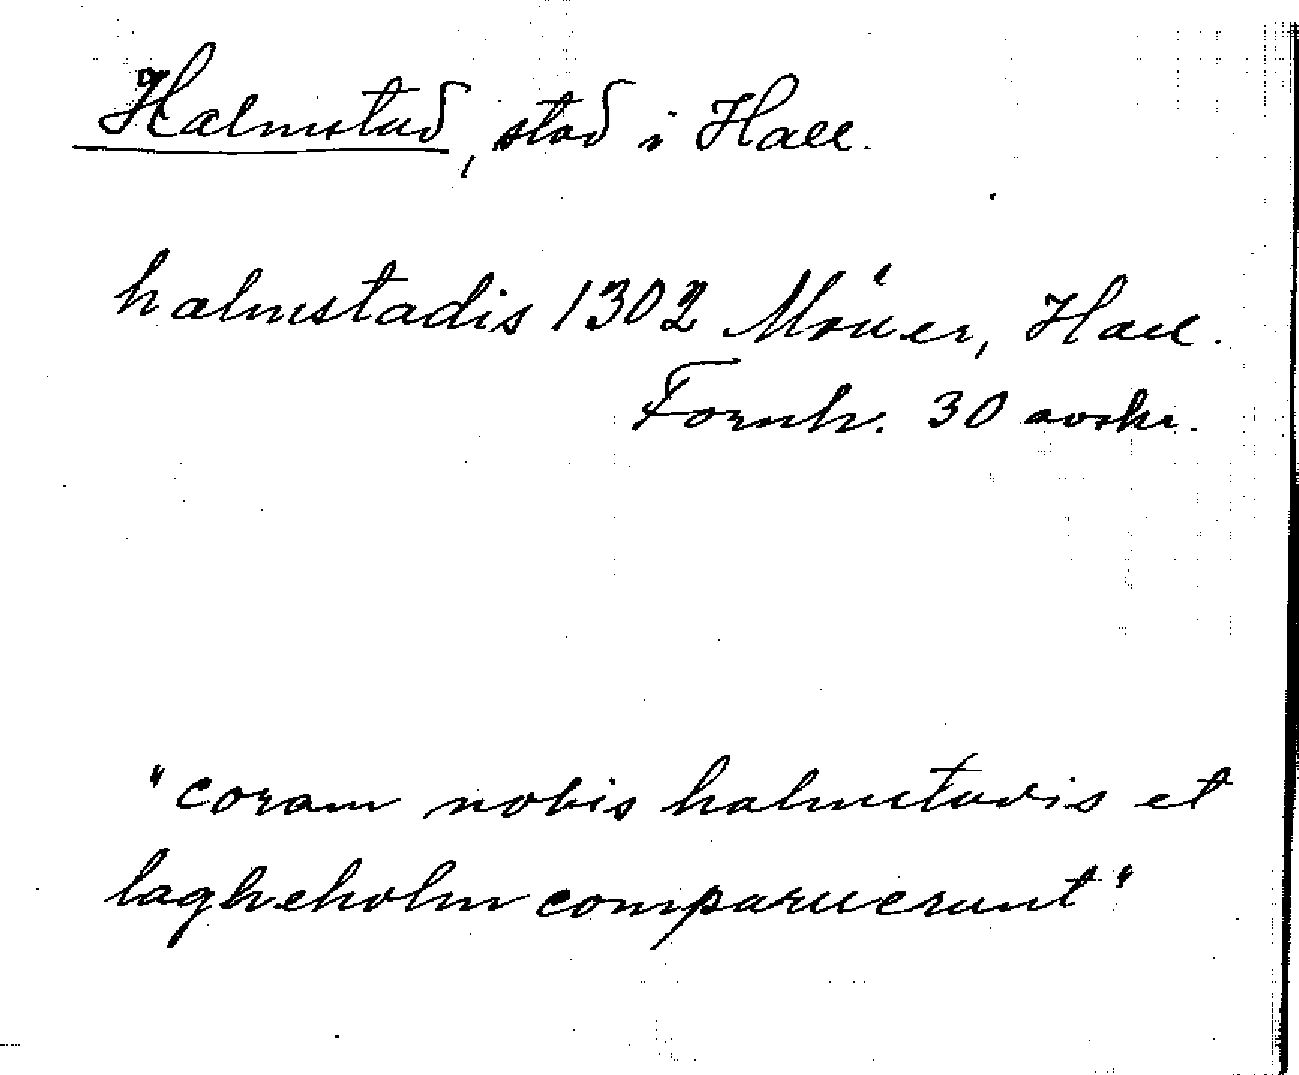 Halmstad, stad i Hall.
halmstadis 1302 Möller, Hall.
Fornh. 30 avskr.
"coram nobis halmstadis et
lagheholm comparuerunt"